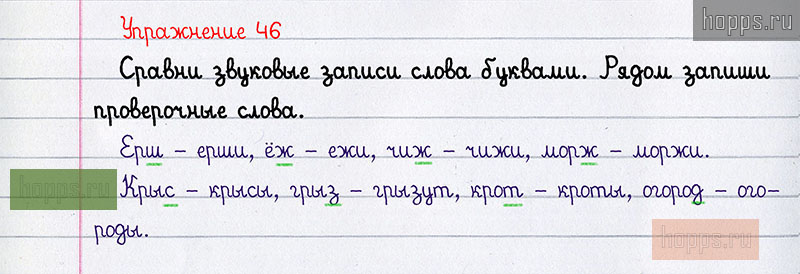 hopps.ru
Упражнение 46
Сравни звуковые записи слова буквами. Рядом запиши
проверочные слова.
Ерш – ерши, ёж – ежи, чиж – чижи, морж – моржи.
hopps.ru
Крыс – крысы, грыз – грызут, крот – кроты, огород – ого-
роды.
hopps.ru